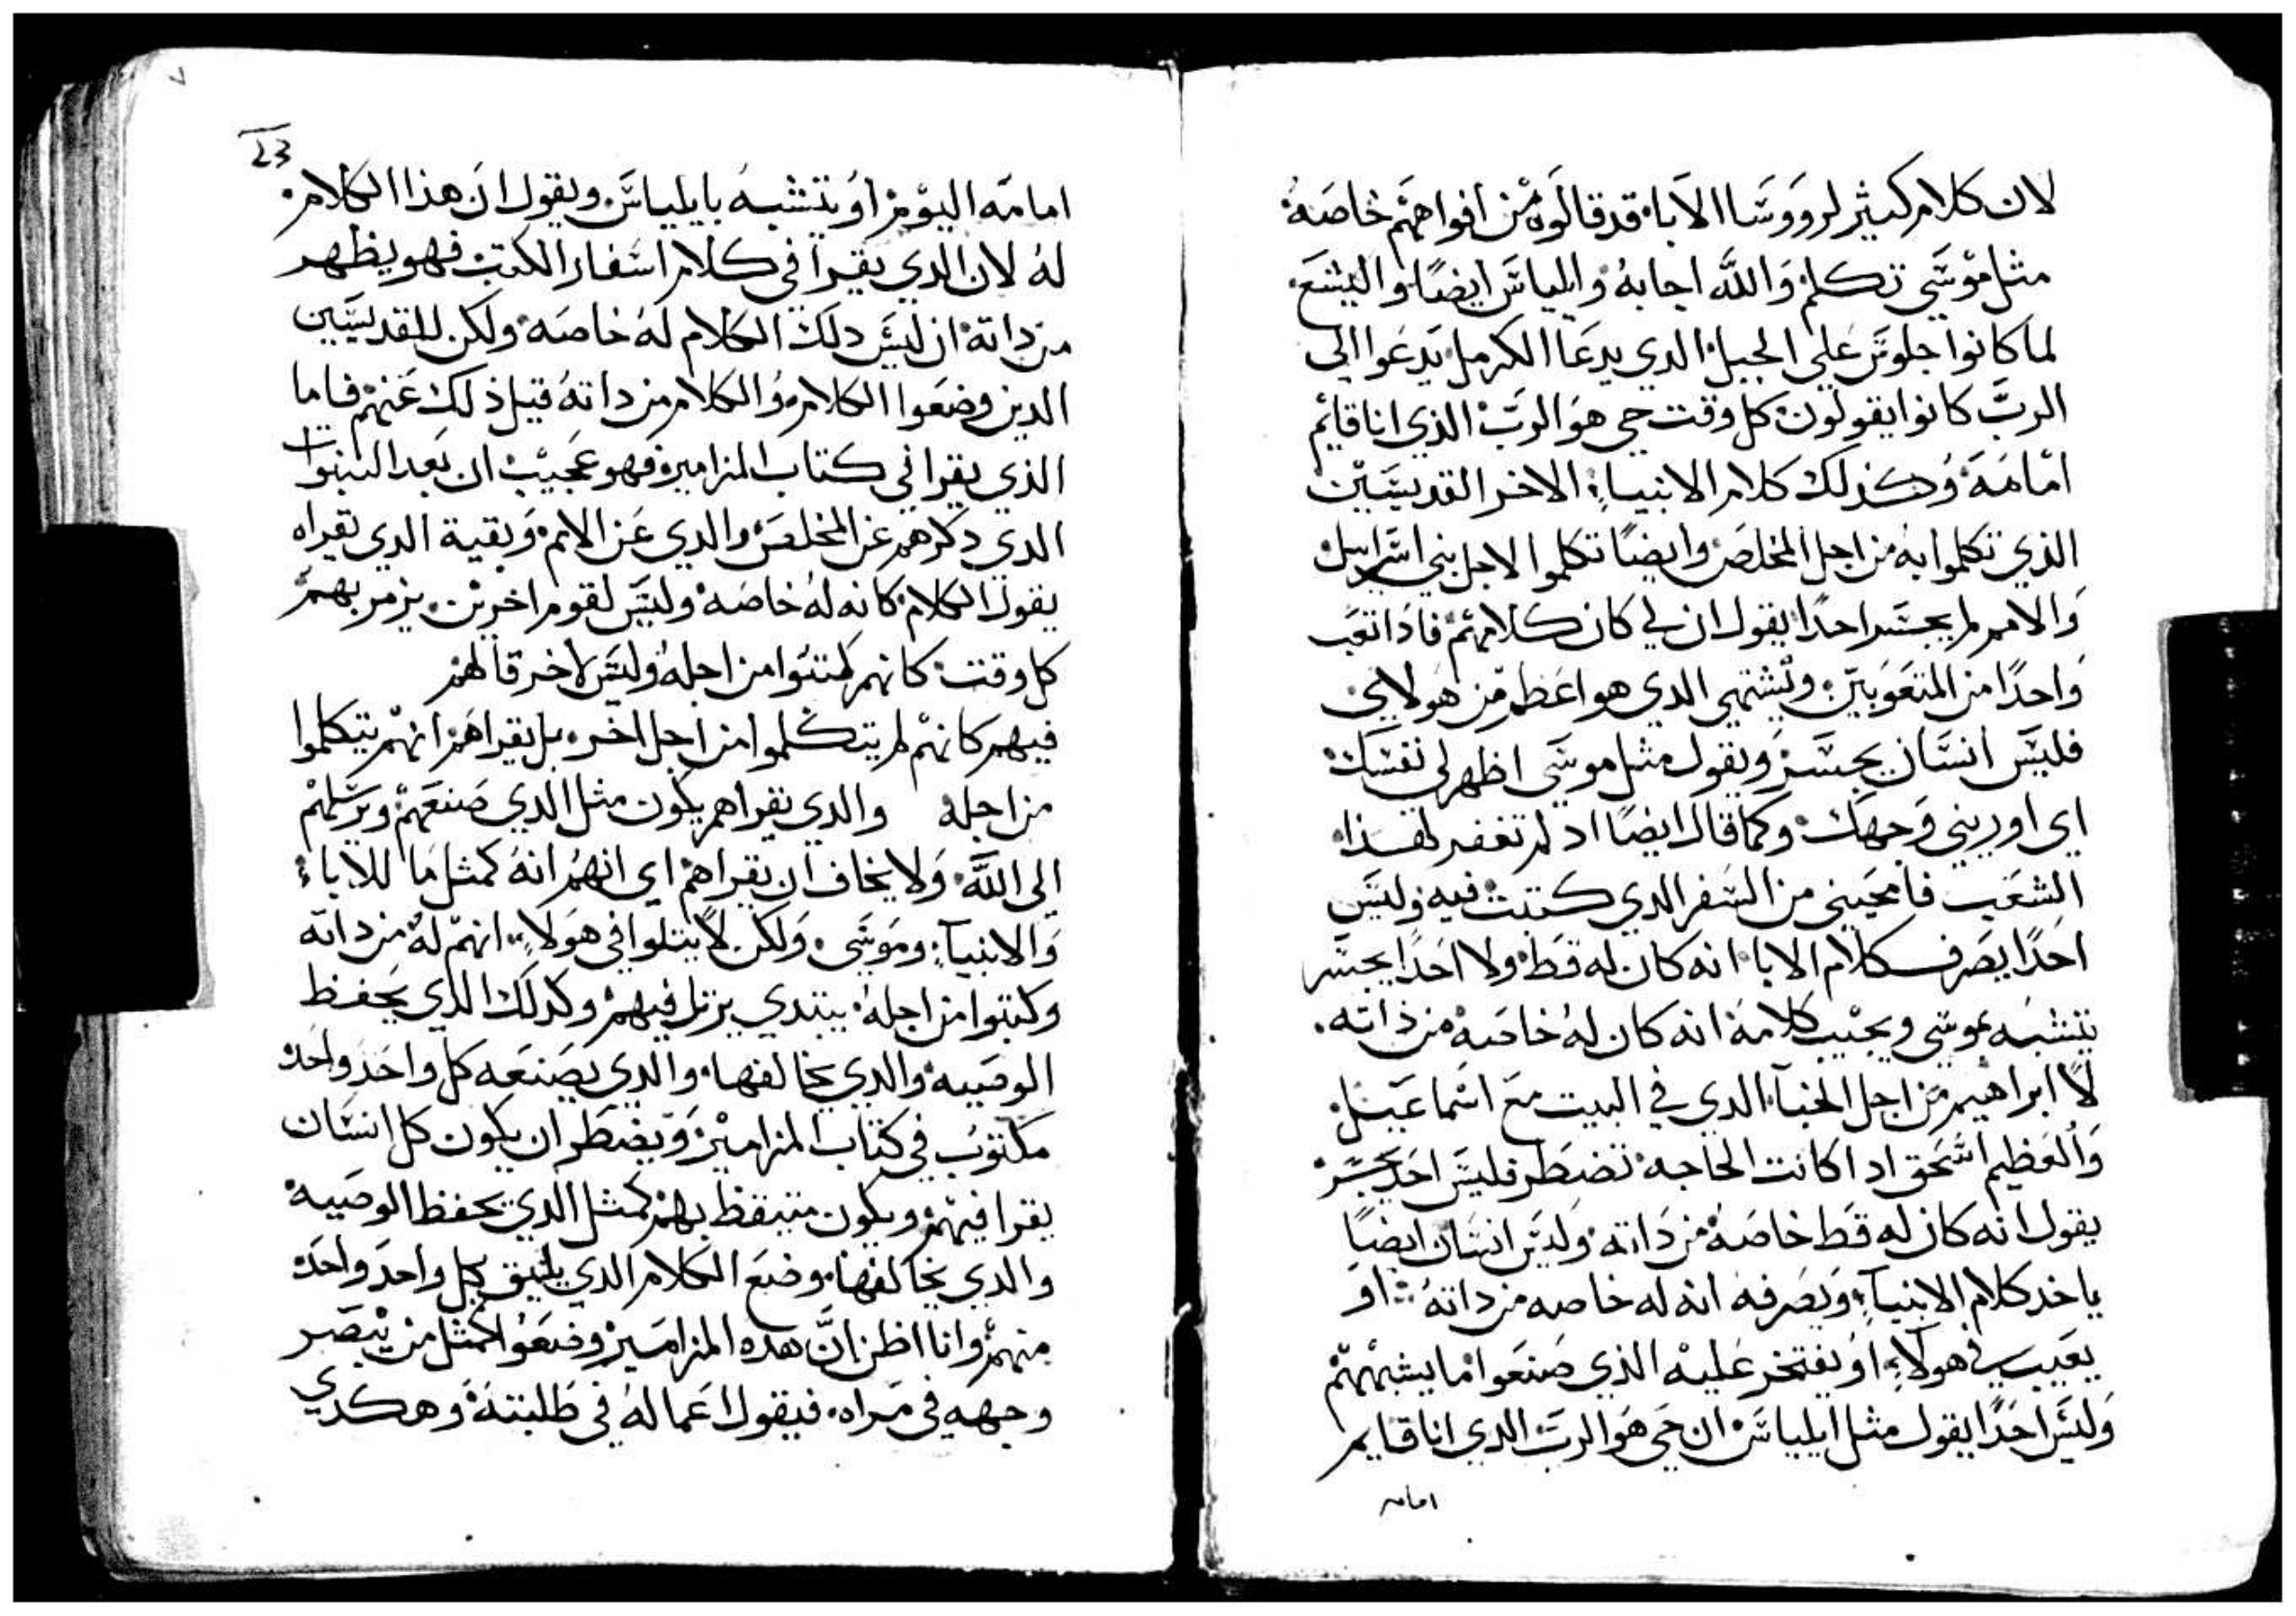 لان كلام كثير لرووسا الابا، قد قالوه من افواههم خاصة
مثل موسى تكلم والله اجابه وايلياس ايضا واليشع
لما كانوا جلوس على الجبل الدي يدعا الكرمل يدعوا الى
الرب كانوا يقولون كل وقت حي هو الرب الذي انا قايم
امامه وكذلك كلام الانبياء الاخر القديسين
الذي تكلموا به من اجل المخلص وايضا تكلموا لاجل بني اسراييل
والامم لم يجسر احدا يقول ان لي كان كلامهم فاذا تعب
واحدا من المتعوبين وتشتهي الدي هو اعظم من هولاي
فليس انسان يجسر ويقول مثل موسى اظهر لي نفسك
اي اوريني وجهك وكما قال ايضا اد لم تغفر لهذا
الشعب فامحيني من السفر الدي كتبت فيه وليس
احدا يصرف كلام الابا انه كان له قط ولا احدا يجسر
يتشبه بموسى ويجيب كلامه انه كان له خاصة من ذاته.
لا ابراهيم من اجل الخبآ الدي في البيت مع اسماعيل
والعظيم اسحق ادا كانت الحاجه تضطر فليس احد يجسر
يقول انه كان له قط خاصة من داته وليس انسان ايضا
ياخد كلام الانبيآء ويصرفه انه له خاصه من داته او
يعيب في هولآء او يفتخر عليه الذي صنعوا ما يشبههم
وليس احدا يقول مثل ايلياس ان حي هو الرب الدي انا قايم
امامه
٧
امامه اليوم او يتشبه بايلياس ويقول ان هذا الكلام
له لان الدي يقرا في كلام اسفار الكتب فهو يظهر
من داته ان ليس دلك الكلام له خاصه ولكن للقديسين
الدين وضعوا الكلام والكلام من داته قيل ذلك عنهم فاما
الذي يقرا في كتاب المزامير فهو عجيب ان بعد النبوات
الدي دكرهم عن المخلص والدي عن الامم وبقية الدي تقراه
يقول الكلام كانه له خاصه وليس لقوم اخرين يزمر بهم
كل وقت كانهم كتبوا من اجله وليس لاخر قالهم
فيهم كانهم لم يتكلموا من اجل اخر بل يقراهم انهم يتكلموا
من اجله والدي يقراهم يكون مثل الدي صنعهم ويرسلهم
الى الله ولا يخاف ان يقراهم اي انهم انه كمثل ما للاباء
والانبيآء وموسى ولكن لا يتلوا في هولاء انهم له من داته
وكتبوا من اجله يبتدي يرتل فيهم وكدلك الدي يحفظ
الوصيه والدي يخالفها والدي يصنعه كل واحد واحد
مكتوب في كتاب المزامير ويضطر ان يكون كل انسان
يقرا فيهم ويكون متيقظ بهم كمثل الدي يحفظ الوصيه
والدي يخالفها وضع الكلام الدي يليق بكل واحد واحد
منهم وانا اظن ان هده المزامير وضعوا كمثل من يبصر
وجهه في مراه فيقول اعماله في طلبته وهكدي